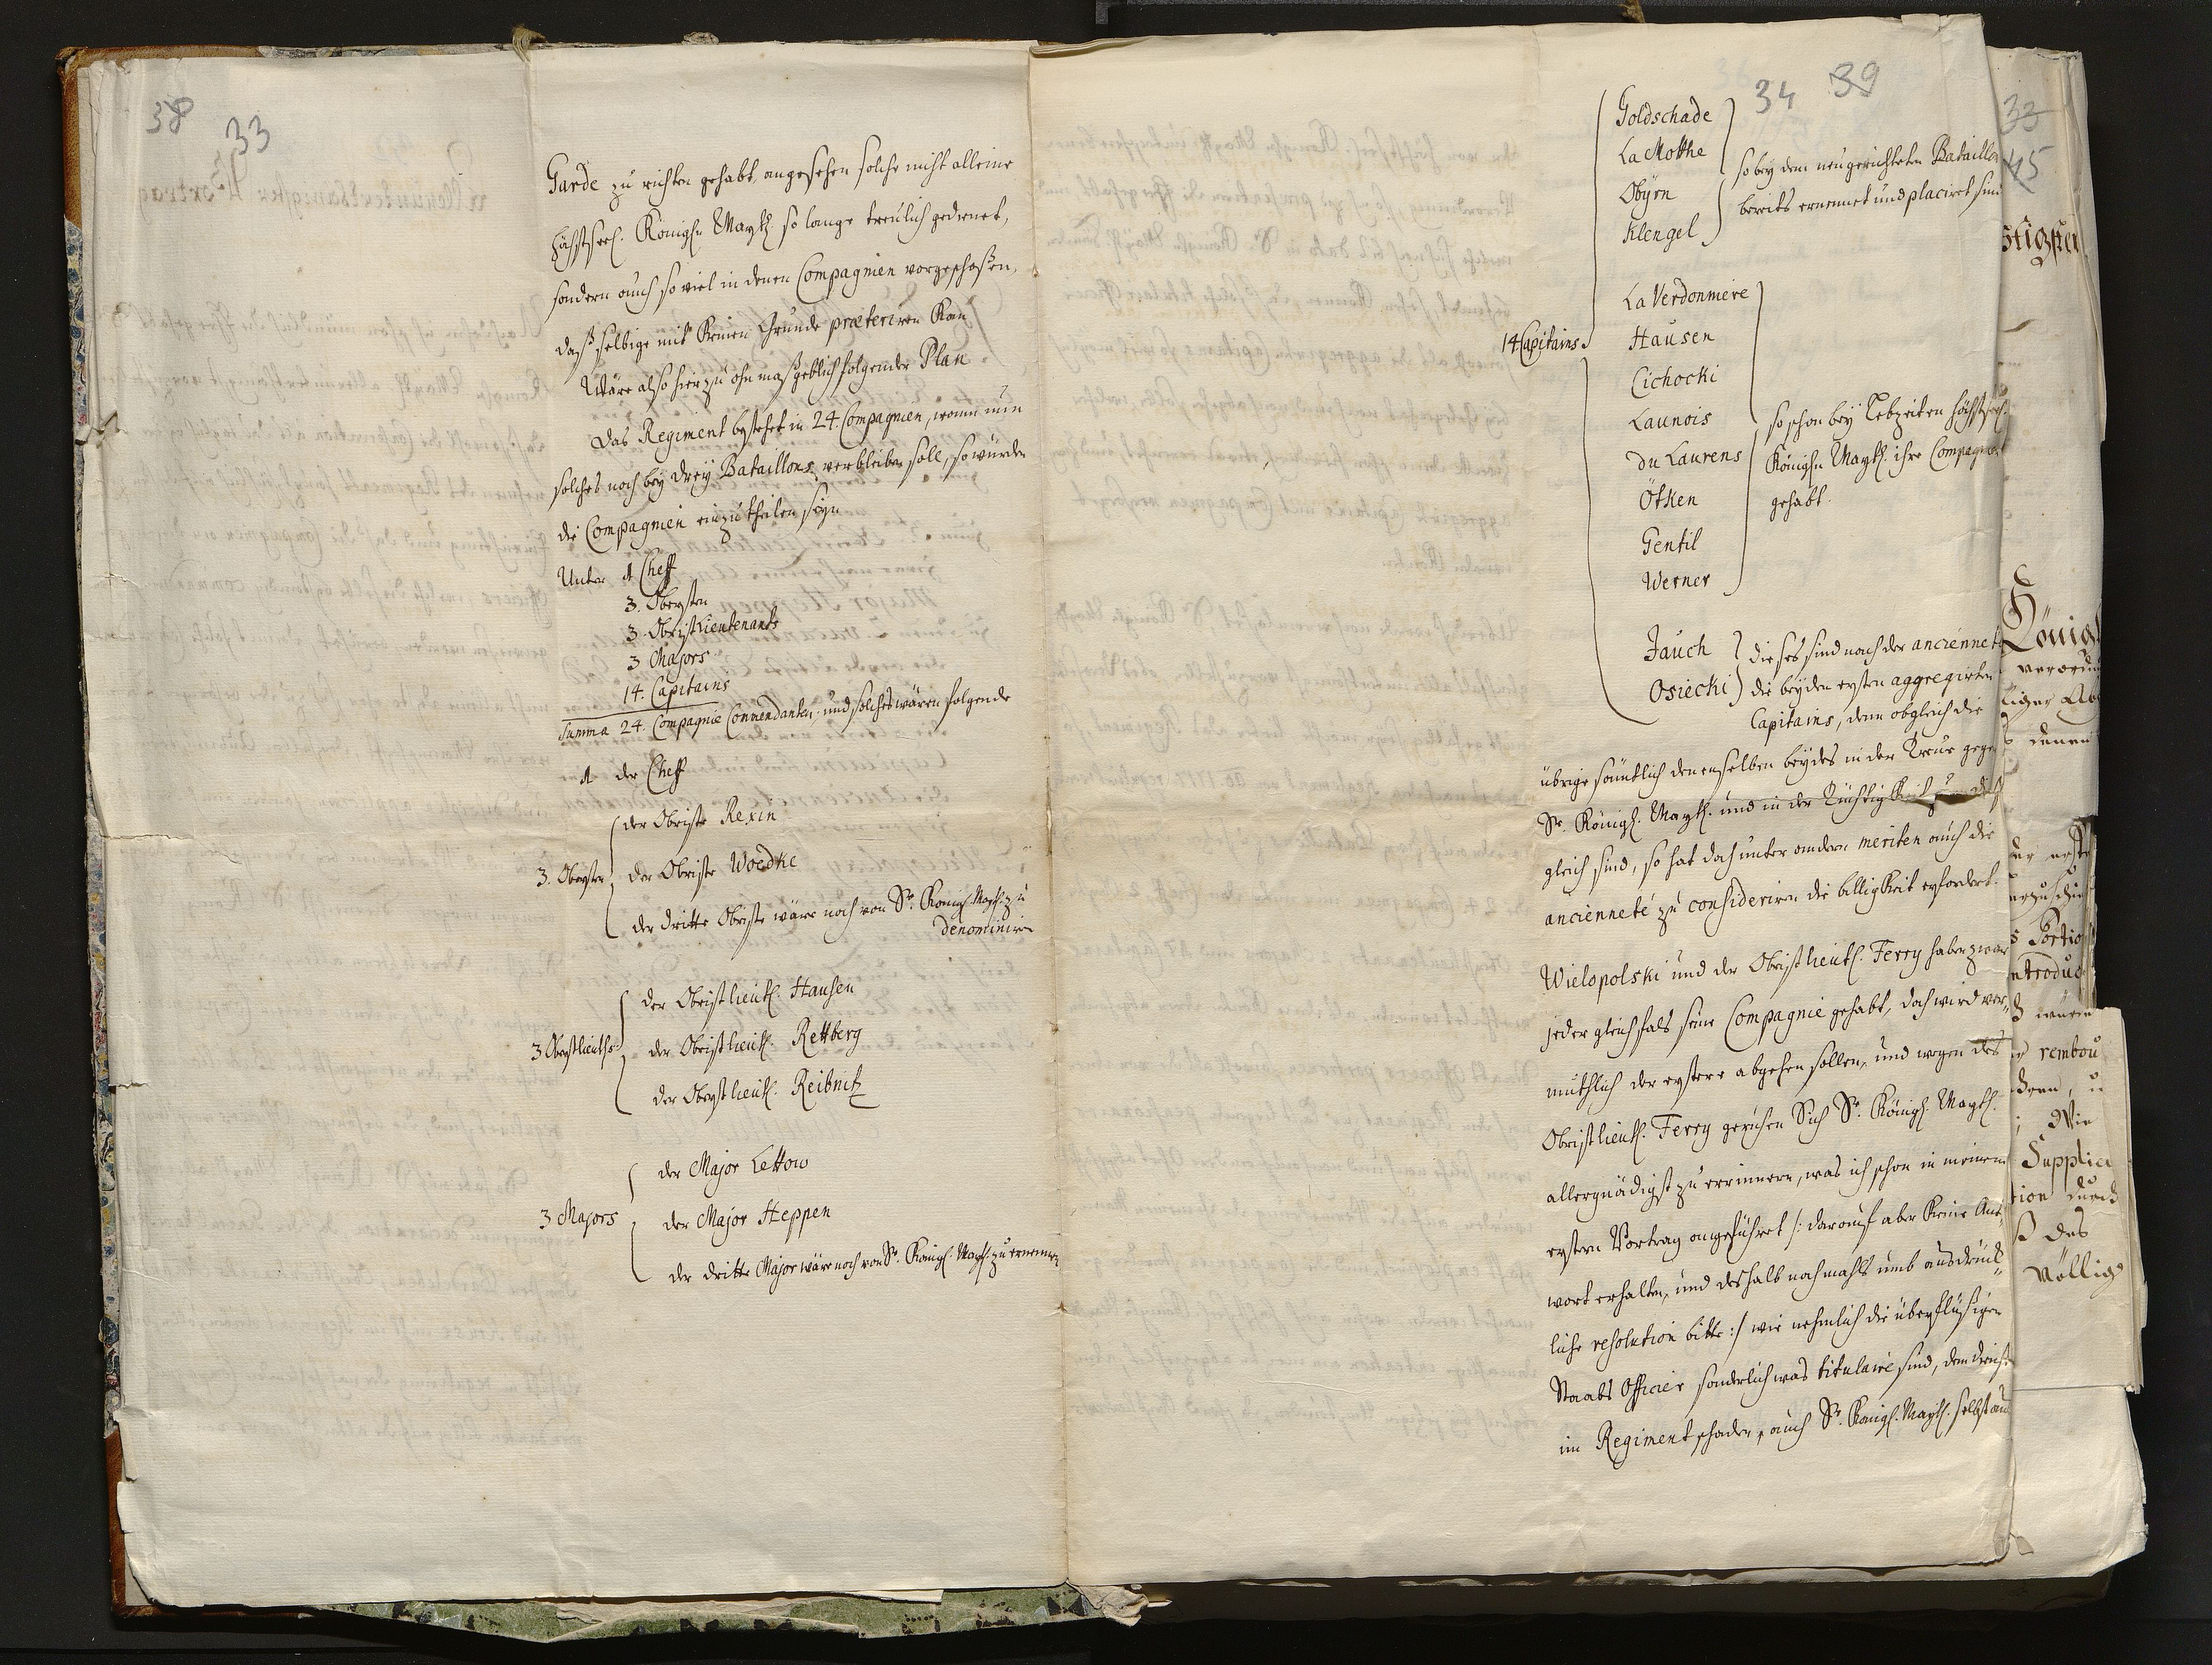 38
33
Garde zu richten gehabt, angesehen solche nicht alleine
höchstseel. Königl. Mayth. so lange treulich gedienet,
sondern auch so viel in denen Compagnien vorgeschoßen,
daß selbige mit keinen Grunde præteriren kan
Wäre also hierzu ohnmaßgeblich folgender Plan
Das Regiment bestehet in 24. Compagnien, wann nun
solches noch bey drey Bataillons verbleiben soll, so würden
die Compagnien einzutheilen seyn
Unter 1 Cheff
3. Obersten
3. Obristlieutenants
3 Majors
14. Capitains
Summa 24. Compagnie Commendanten und solches wären folgende
1 der Cheff
3. Obersten
der Obriste Rexin
der Obriste Woedke
der dritte Obriste wäre noch von Sr. Königl. Mayth. zu
denominiren
3 Obristlieuths
der Obristlieut. Hausen
der Obristlieut. Rettberg
der Obristlieut. Reibnitz
3 Majors
der Major Lettow
der Major Heppen
der dritte Major wäre noch von Sr. Königl. Mayth. zu ernennen
34 39
14 Capitains
Goldschade
La Mothe
Obÿrn
Klengel
so bey dem neu gerichteten Bataillon
bereits ernennet und placiret sind
La Verdonniere
Hausen
Cichocki
Launois
du Laurens
Ötken
Gentil
Werner
so schon bey Lebzeiten höchstseel.
Königl. Mayth. ihre Compagnien
gehabt.
Jauch
Osiecki
dieses sind nach der ancienneté
die beyden ersten aggregirten
Capitains, denn obgleich die
übrige sämtlich denenselben beydes in der Treue gegen
Sr. Königl. Mayth. und in der Tüchtigkeit
gleich sind, so hat doch unter andern meriten auch die
ancienneté zu consideriren die billigkeit erfordert.
Wielopolski und der Obristlieut. Ferry haben zwar
jeder gleichfals seine Compagnie gehabt, doch wird ver¬
muthlich der erstere abgehen sollen, und wegen des
Obristlieut. Ferry geruhen Sich Sr. Königl. Mayth.
allergnädigst zu errinnern, was ich schon in meinem
erstern Vortrag angeführet /: darauf aber keine Ant¬
wort erhalten, und deshalb nochmahls umb ausdrück¬
liche resolution bitte :/ wie nehmlich die überflüßigen
Staabs Officier sonderlich was titulaire sind, dem dienst
im Regiment schaden, auch Sr. Königl. Mayth. selbst an
33
45
König
rembou
Supplic
des
völlig